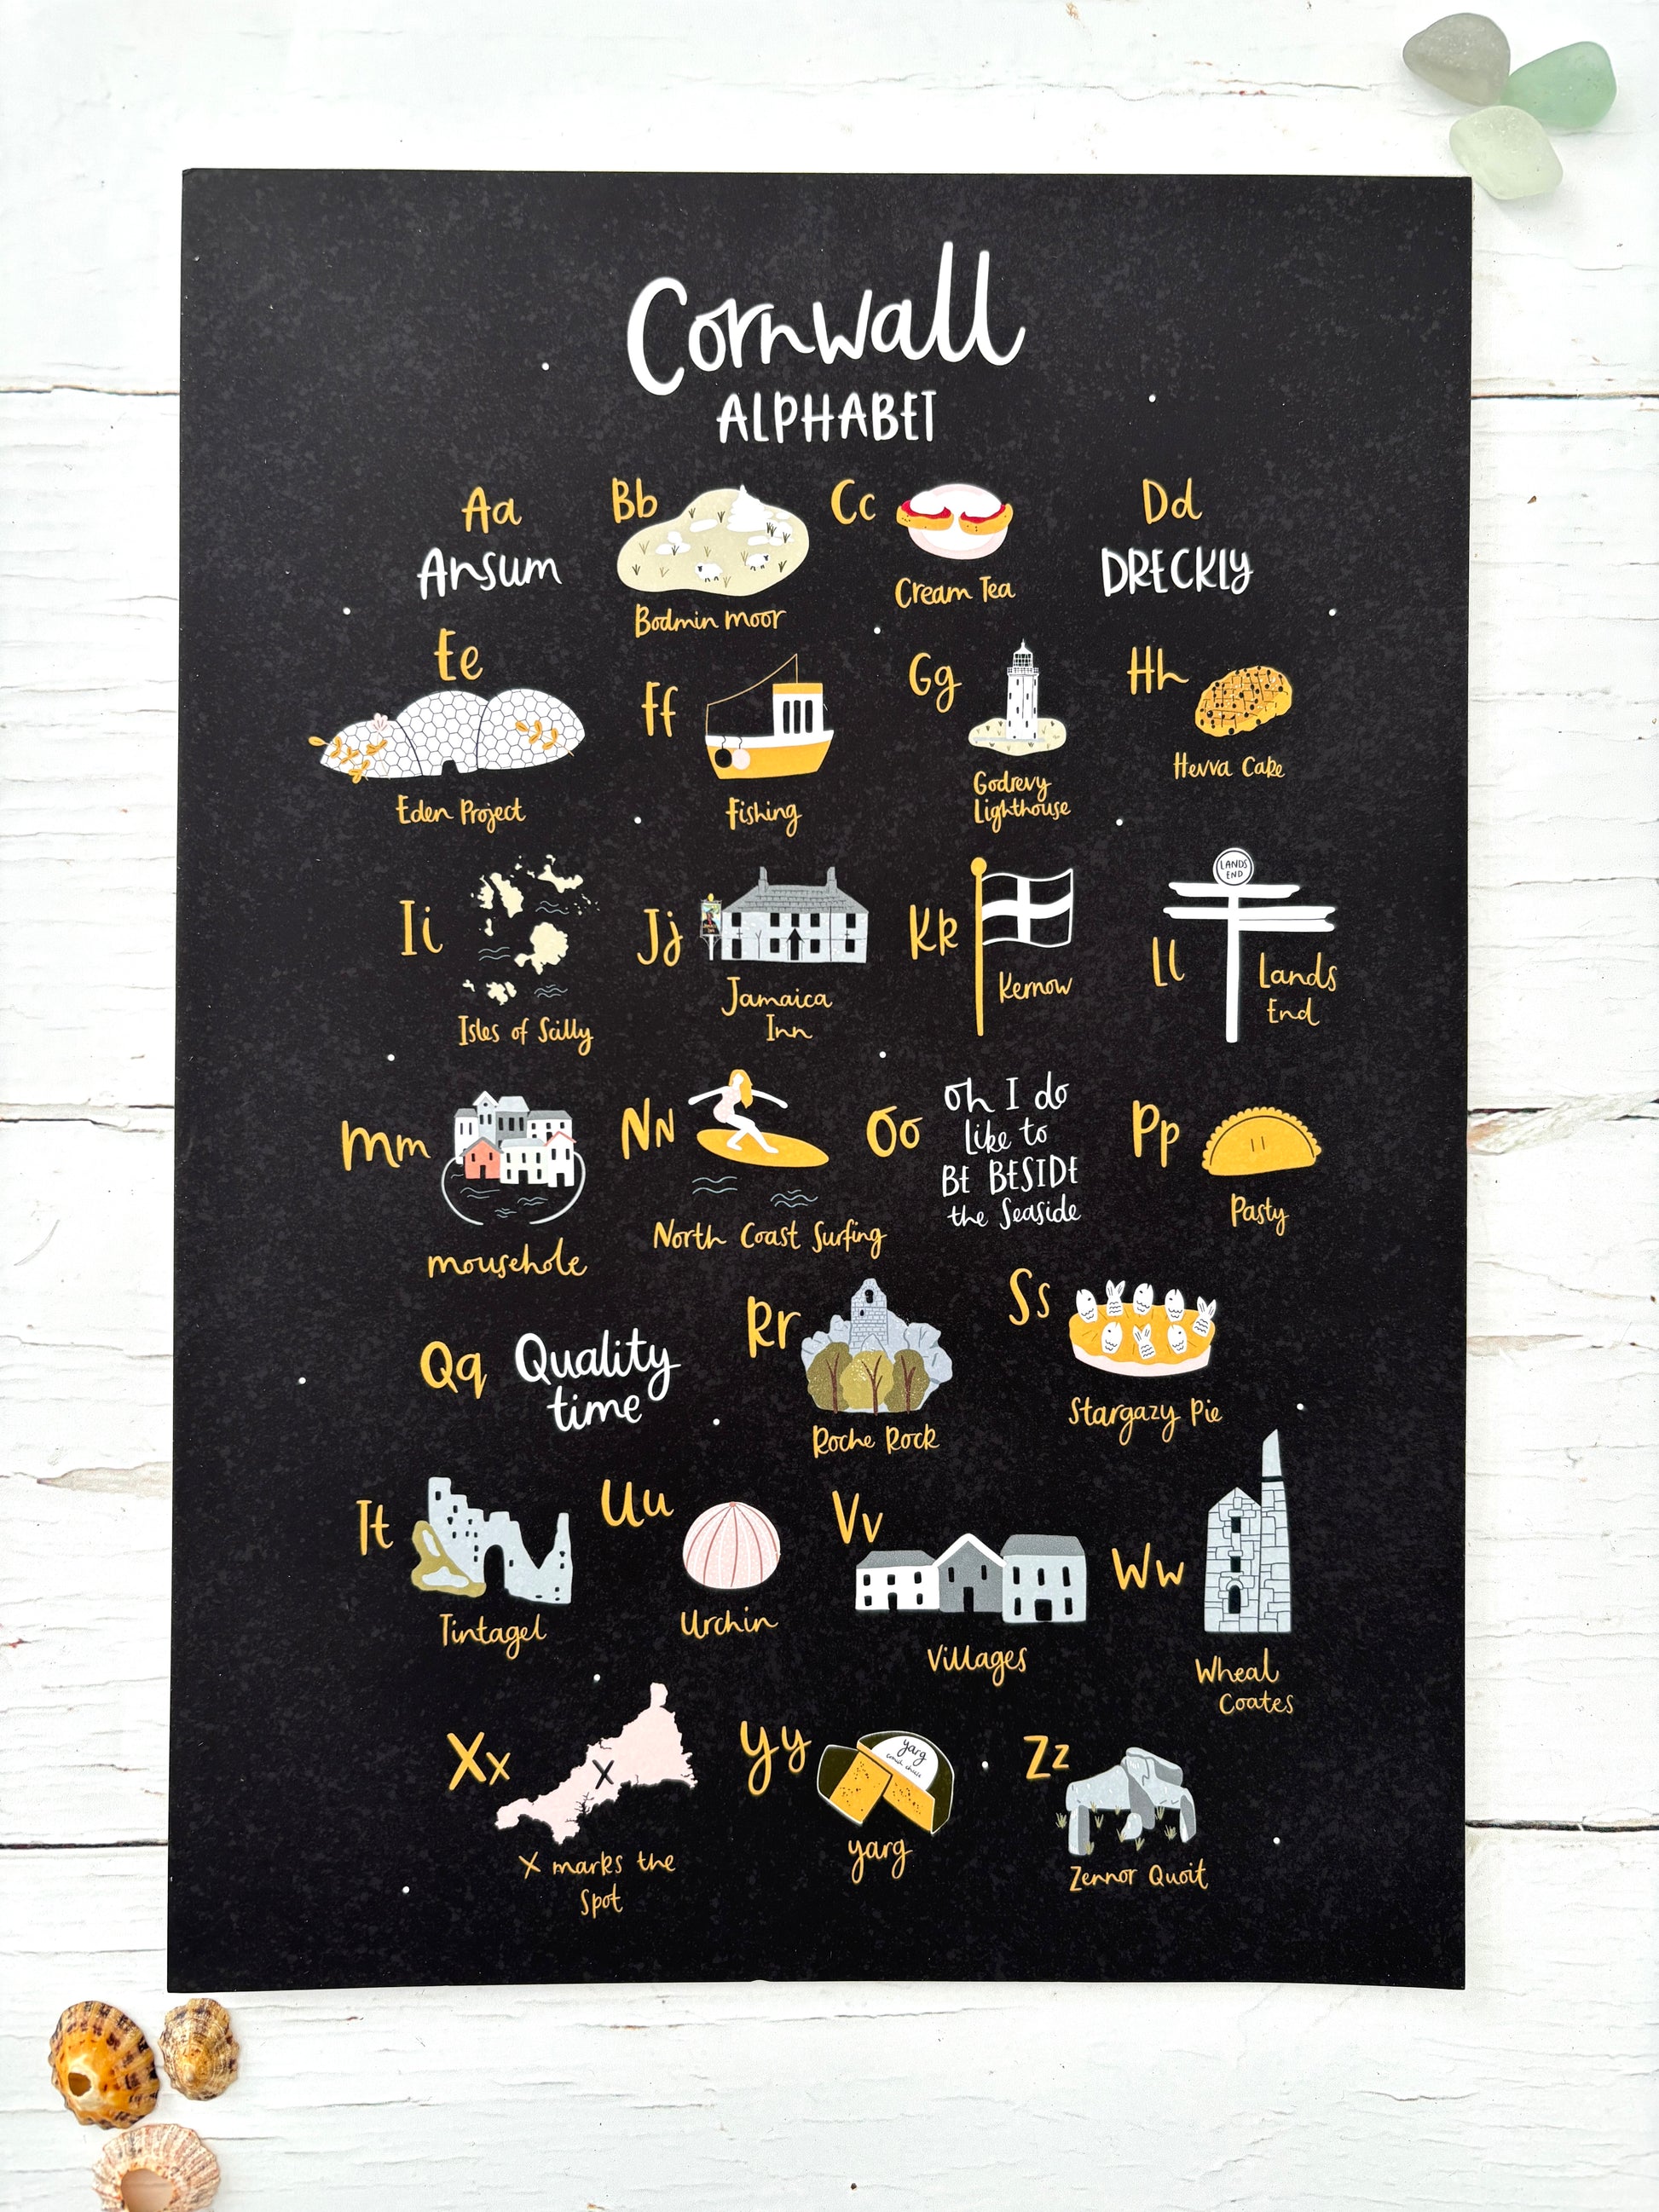 Cornwall
ALPHABET
Aa
Ansum
Bb
Bodmin Moor
Cc
Cream Tea
Dd
DRECKLY
Ee
Eden Project
Ff
Fishing
Gg
Godrevy
Lighthouse
Hh
Hevva Cake
Ii
Isles of Scilly
Jj
Jamaica
Inn
Kk
Kernow
LANDS
END
Ll
Lands
End
Mm
mousehole
Nn
North Coast Surfing
Oo
oh I do
like to
BE BESIDE
the Seaside
Pp
Pasty
Qq
Quality
time
Rr
Roche Rock
Ss
Stargazy Pie
Tt
Tintagel
Uu
Urchin
Vv
Villages
Ww
Wheal
Coates
Xx
X
X marks the
Spot
Yy
yarg
cornish cheese
yarg
Zz
Zennor Quoit